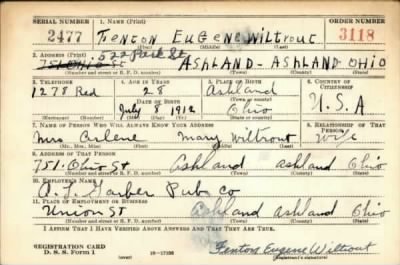 SERIAL NUMBER 1. NAME (Print) ORDER NUMBER
2477 Fenton Eugene Wiltrout 3118
(First) (Middle) (Last)
522 Park St
2. ADDRESS (Print)
751 Ohio St ASHLAND - ASHLAND OHIO
(Number and street or R. F. D. number) (Town) (County) (State)
3. TELEPHONE 4. AGE IN YEARS 5. PLACE OF BIRTH 6. COUNTRY OF CITIZENSHIP
1278 Red 28 Ashland
DATE OF BIRTH (Town or county)
July 8 1912 Ohio U.S.A
(Exchange) (Number) (Mo.) (Day) (Yr.) (State or country)
7. NAME OF PERSON WHO WILL ALWAYS KNOW YOUR ADDRESS 8. RELATIONSHIP OF THAT PERSON
Mrs Arlene Mary Wiltrout Wife
(Mr., Mrs., Miss) (First) (Middle) (Last)
9. ADDRESS OF THAT PERSON
751 Ohio St Ashland Ashland Ohio
(Number and street or R. F. D. number) (Town) (County) (State)
10. EMPLOYER'S NAME
A. L. Garber Pub Co
11. PLACE OF EMPLOYMENT OR BUSINESS
Union St Ashland Ashland Ohio
(Number and street or R. F. D. number) (Town) (County) (State)
I AFFIRM THAT I HAVE VERIFIED ABOVE ANSWERS AND THAT THEY ARE TRUE.
REGISTRATION CARD
D. S. S. Form 1 16-17105 Fenton Eugene Wiltrout
(Registrant's signature)